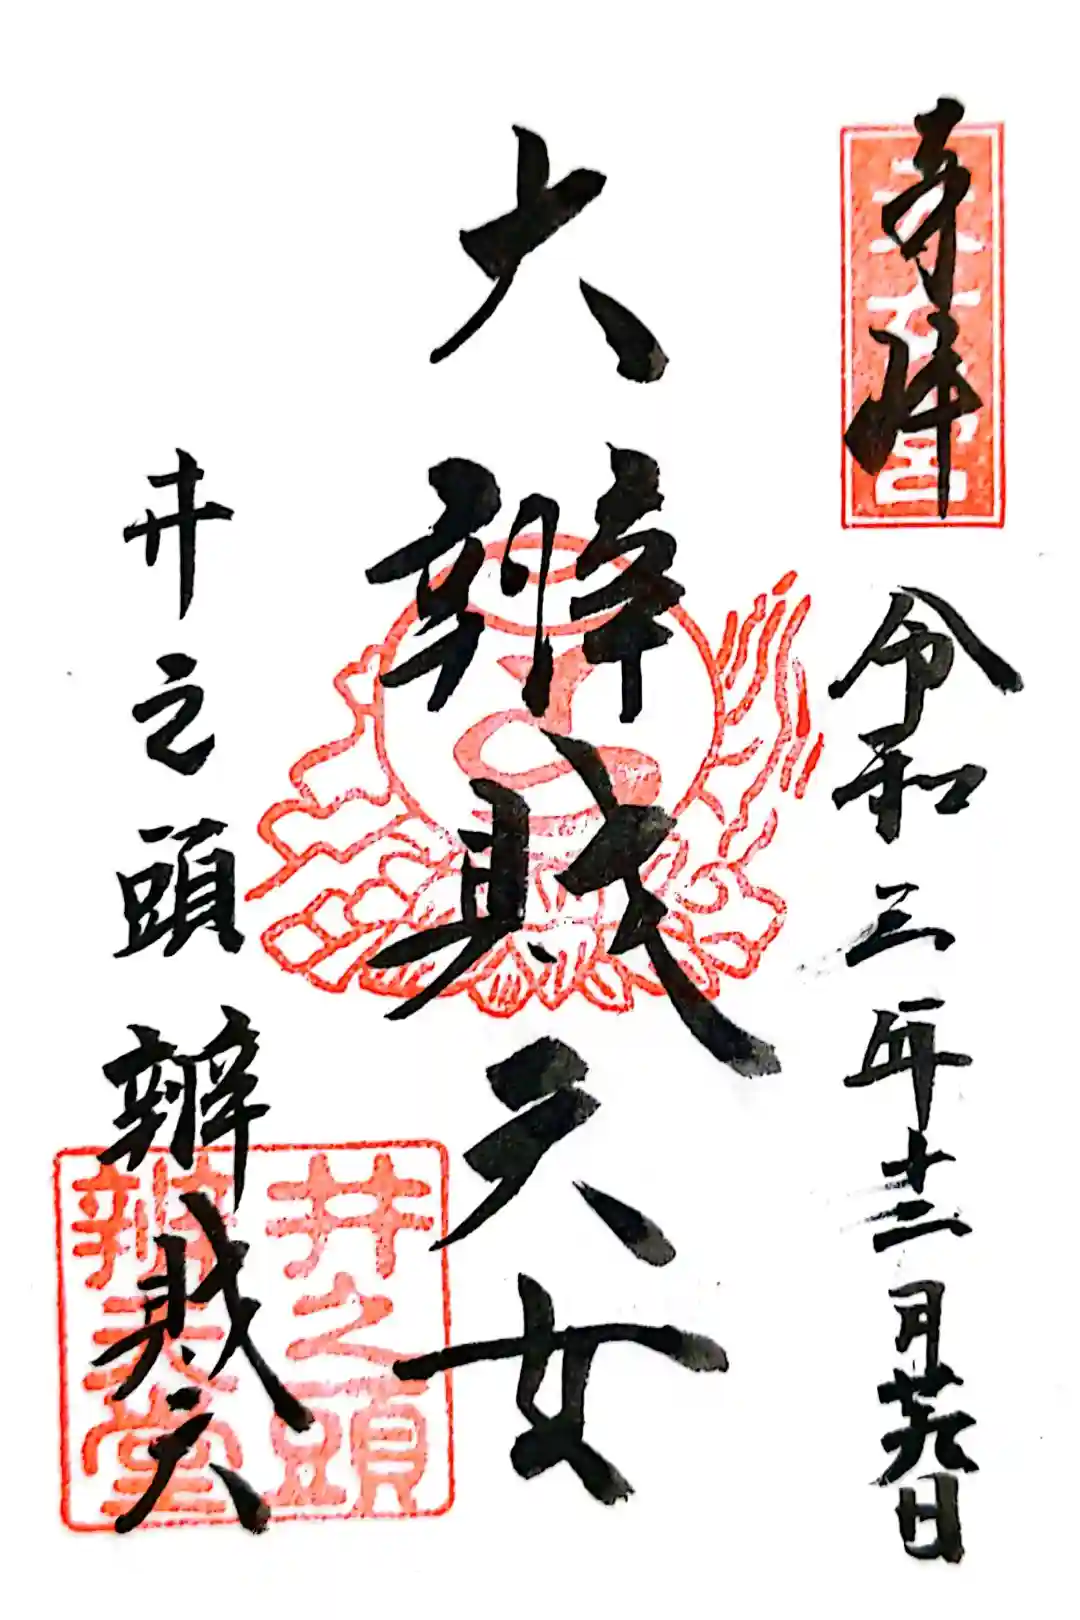 奉拝
令和三年十二月廿九日
大辨財天女
井之頭辨財天
井之頭
辨天堂